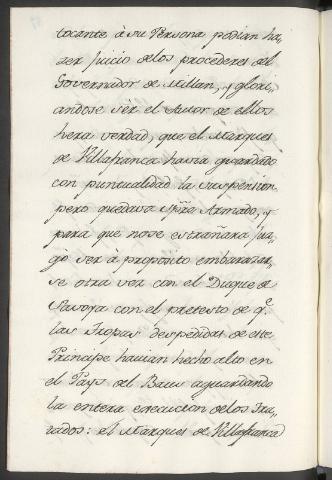 tocante à su Persona podian ha,
zer juicio delos procederes del
Governador de Millan, y glori,
andose sér el Autor de ellos
hera verdad, que el Marques
de Villafranca havia guardado
con puntualidad la suspension
pero quedava spñe Armado, y
para que nose estrañara juz,
gó ser à proposito embarazar,
se otra vez con el Duque de
Savoya con el pretesto de q.^e
las Tropas despedidas de este
Principe havian hecho alto en
el Pays del Baus aguardando
la entera execucion delos Tra,
tados: el Marques de Villafranca